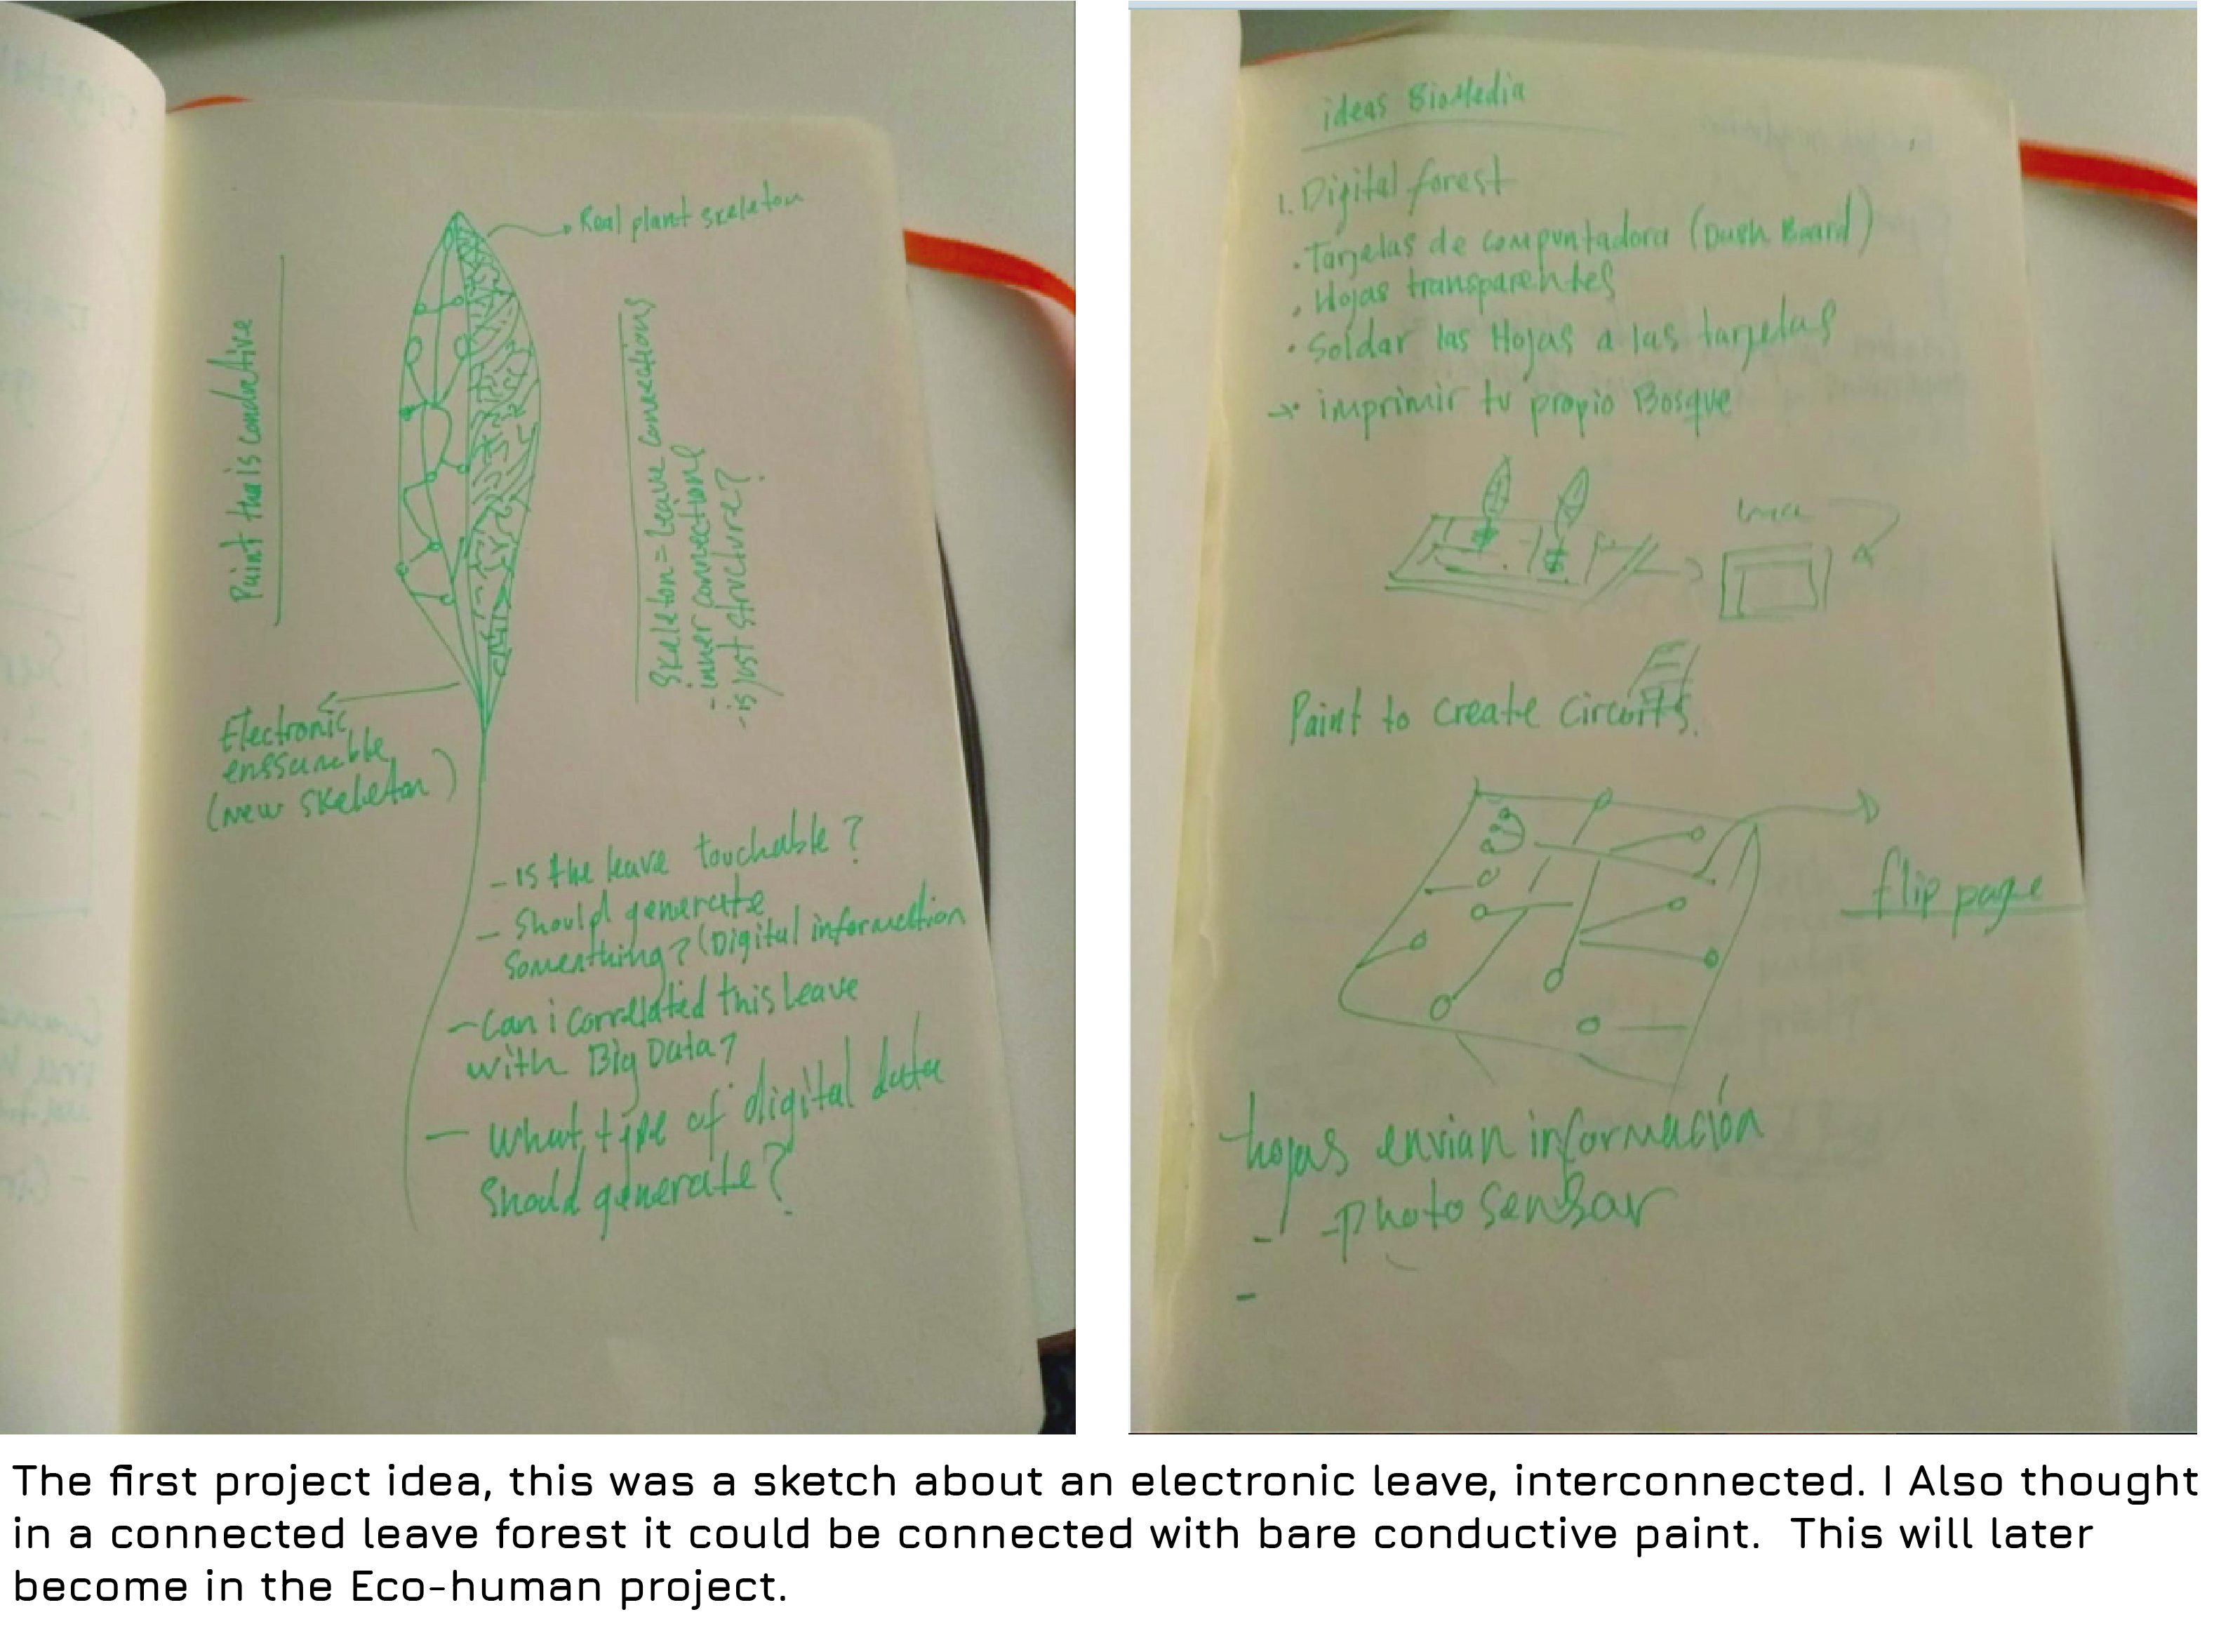 Real plant skeleton
Paint tha is conductive
Skeleton = Leave connections
- inner connections
- is just structure?
Electronic
enssamble
(new skeleton)
- is the leave touchable?
- Should generate
something? (Digital information
- Can i correlated this leave
with Big Data?
- What type of digital data
Should generate?
ideas BioMedia
1. Digital forest
· Tarjetas de computadora (Dush Board)
· Hojas transparentes
· Soldar las Hojas a las tarjetas
→ · imprimir tu propio Bosque
Paint to create circuits.
flip page
hojas envian información
- Photo sensor
-
The first project idea, this was a sketch about an electronic leave, interconnected. I Also thought
in a connected leave forest it could be connected with bare conductive paint.  This will later
become in the Eco-human project.